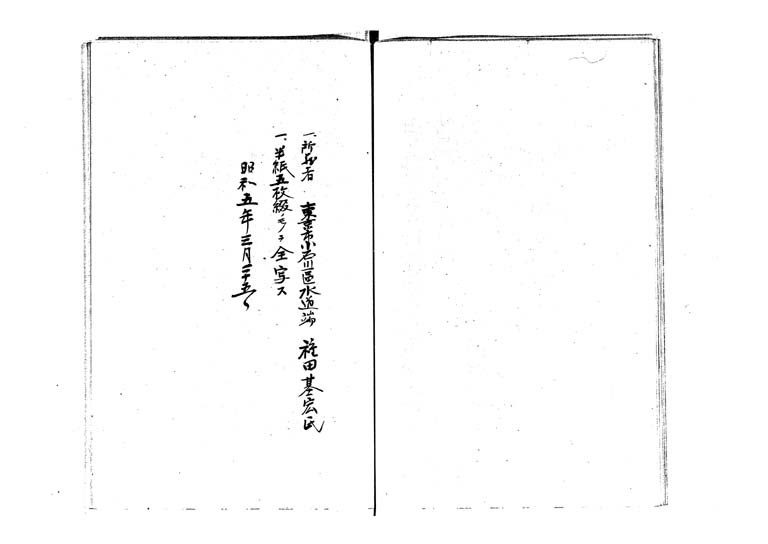 一、所有者 東京市小石川區水道端 福田基宏氏
一、半紙五枚綴ノモノヲ全写ス
昭和五年三月二十五日